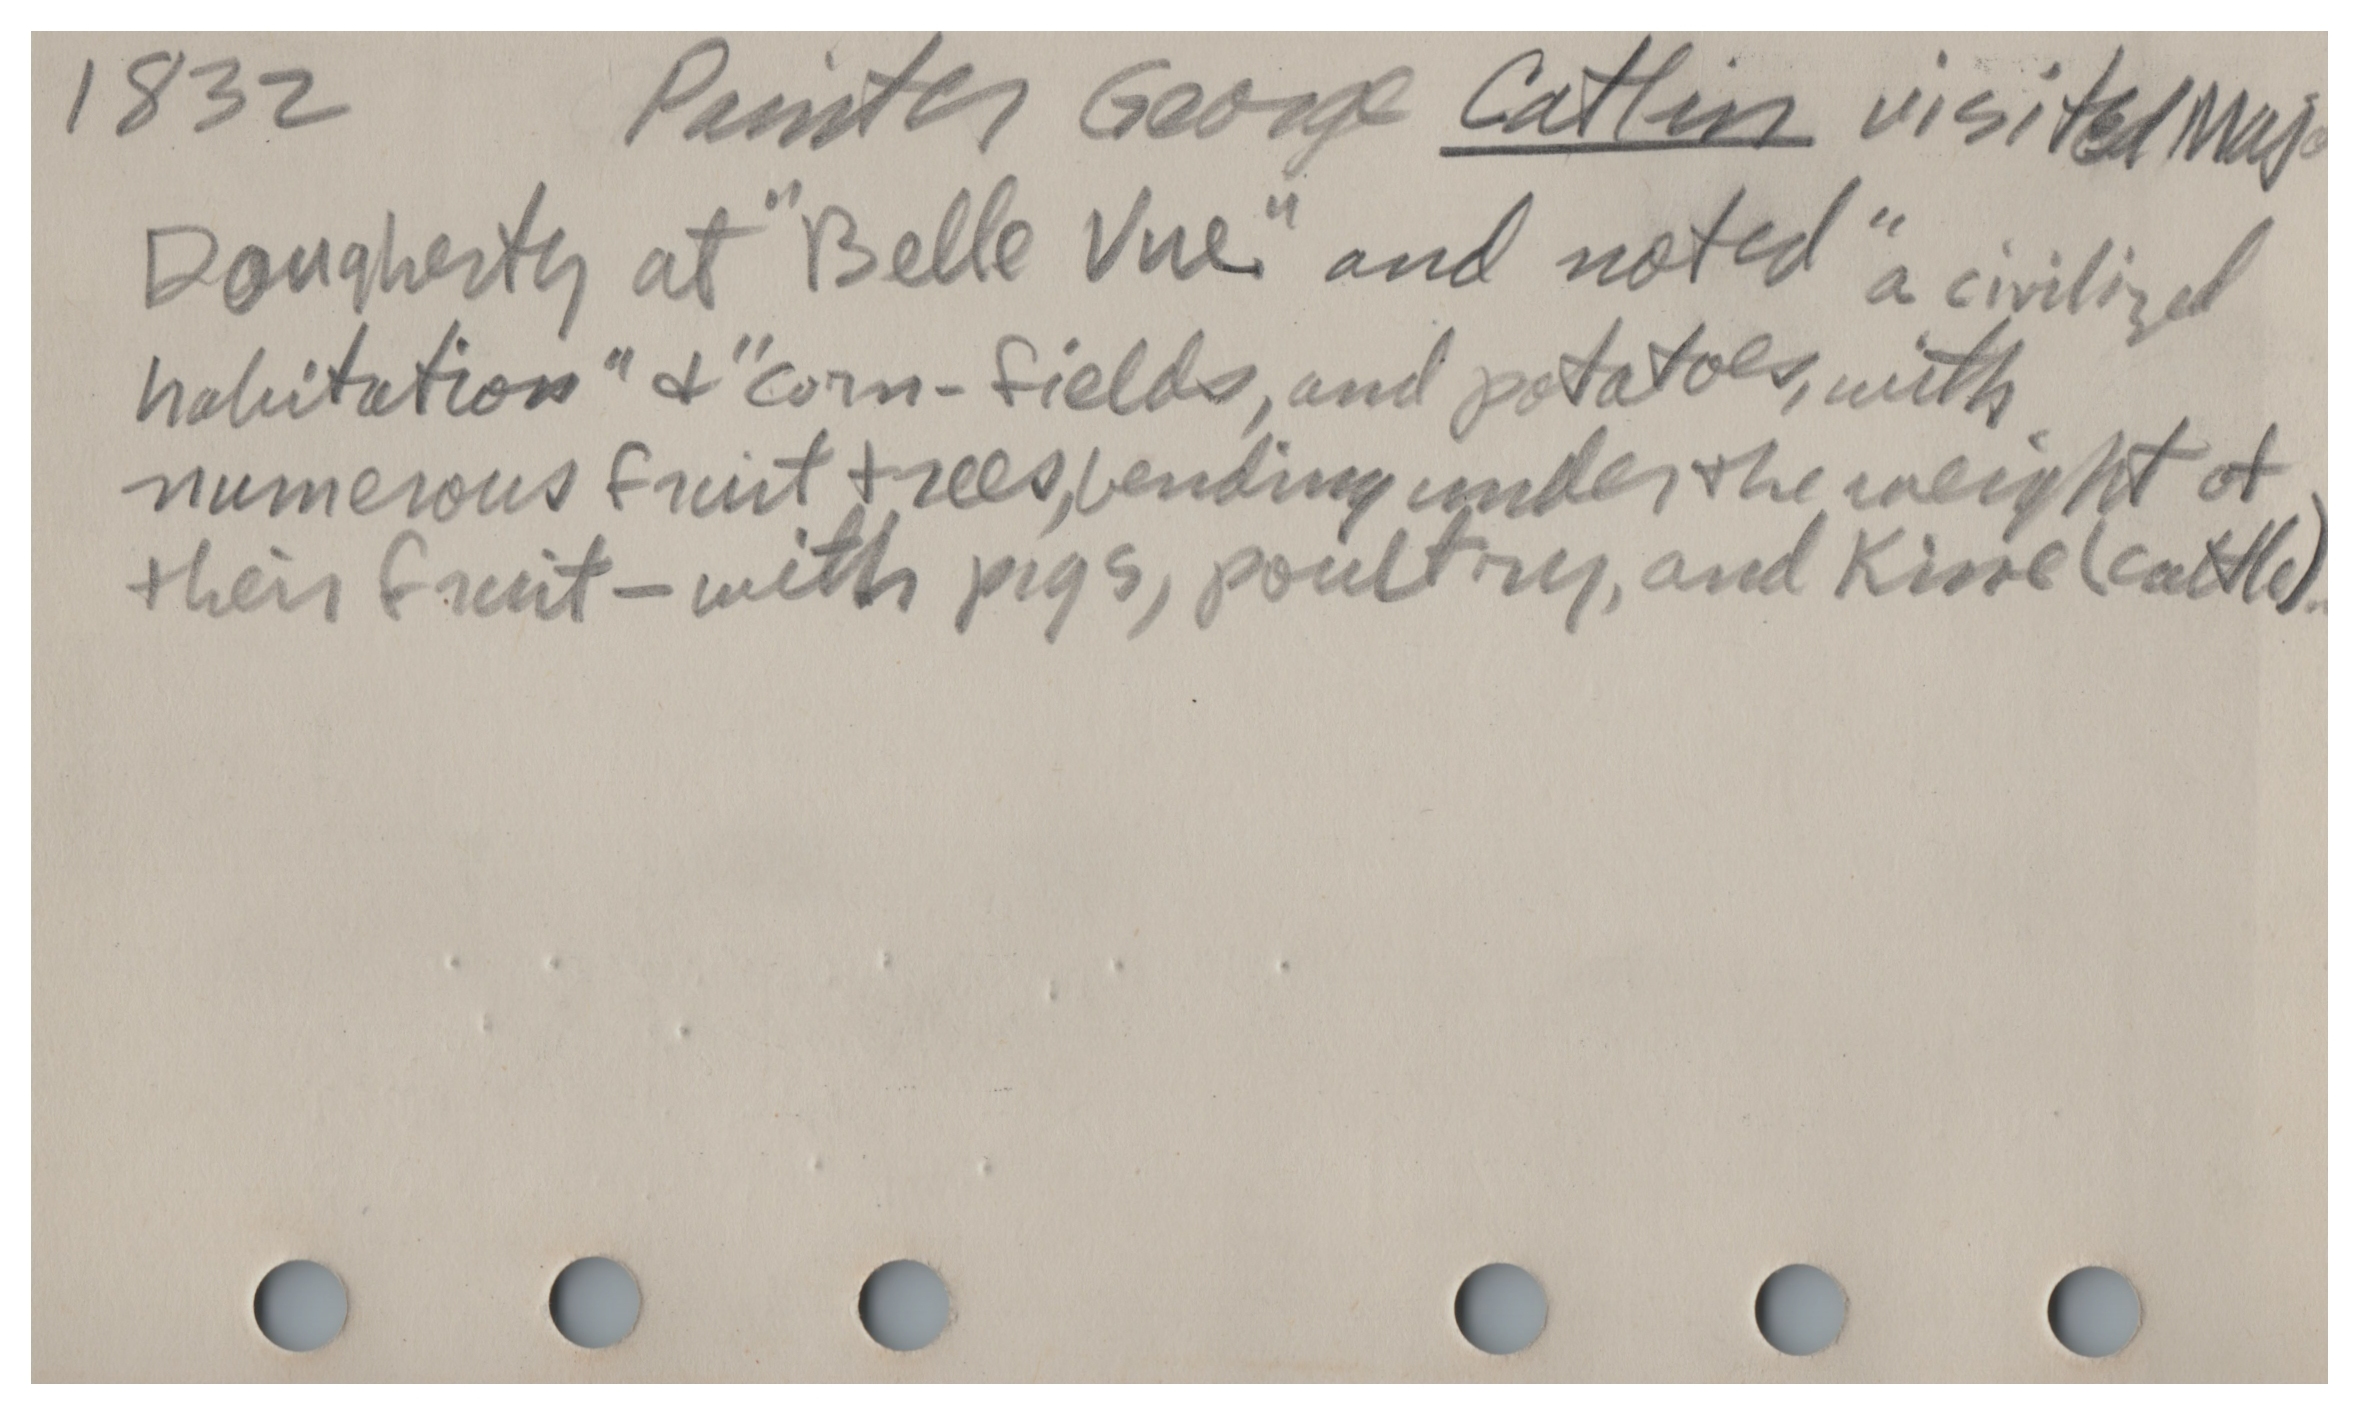 1832 Painter George Catlin visited Majo
Dougherty at "Belle Vue" and noted "a civilized
habitation" & "corn-fields, and potatoes, with
numerous fruit trees, bending under the weight of
their fruit - with pigs, poultry, and Kine (cattle)..